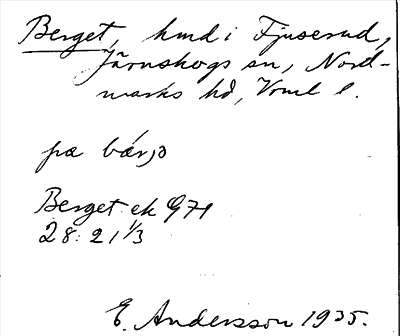 Berget, hmd i Fjuserud,
Järnskogs sn, Nord-
marks hd, Vrml l.
pœ bár,ɔ
Berget ek G 71
28: 21 1/3
E. Andersson 1935.